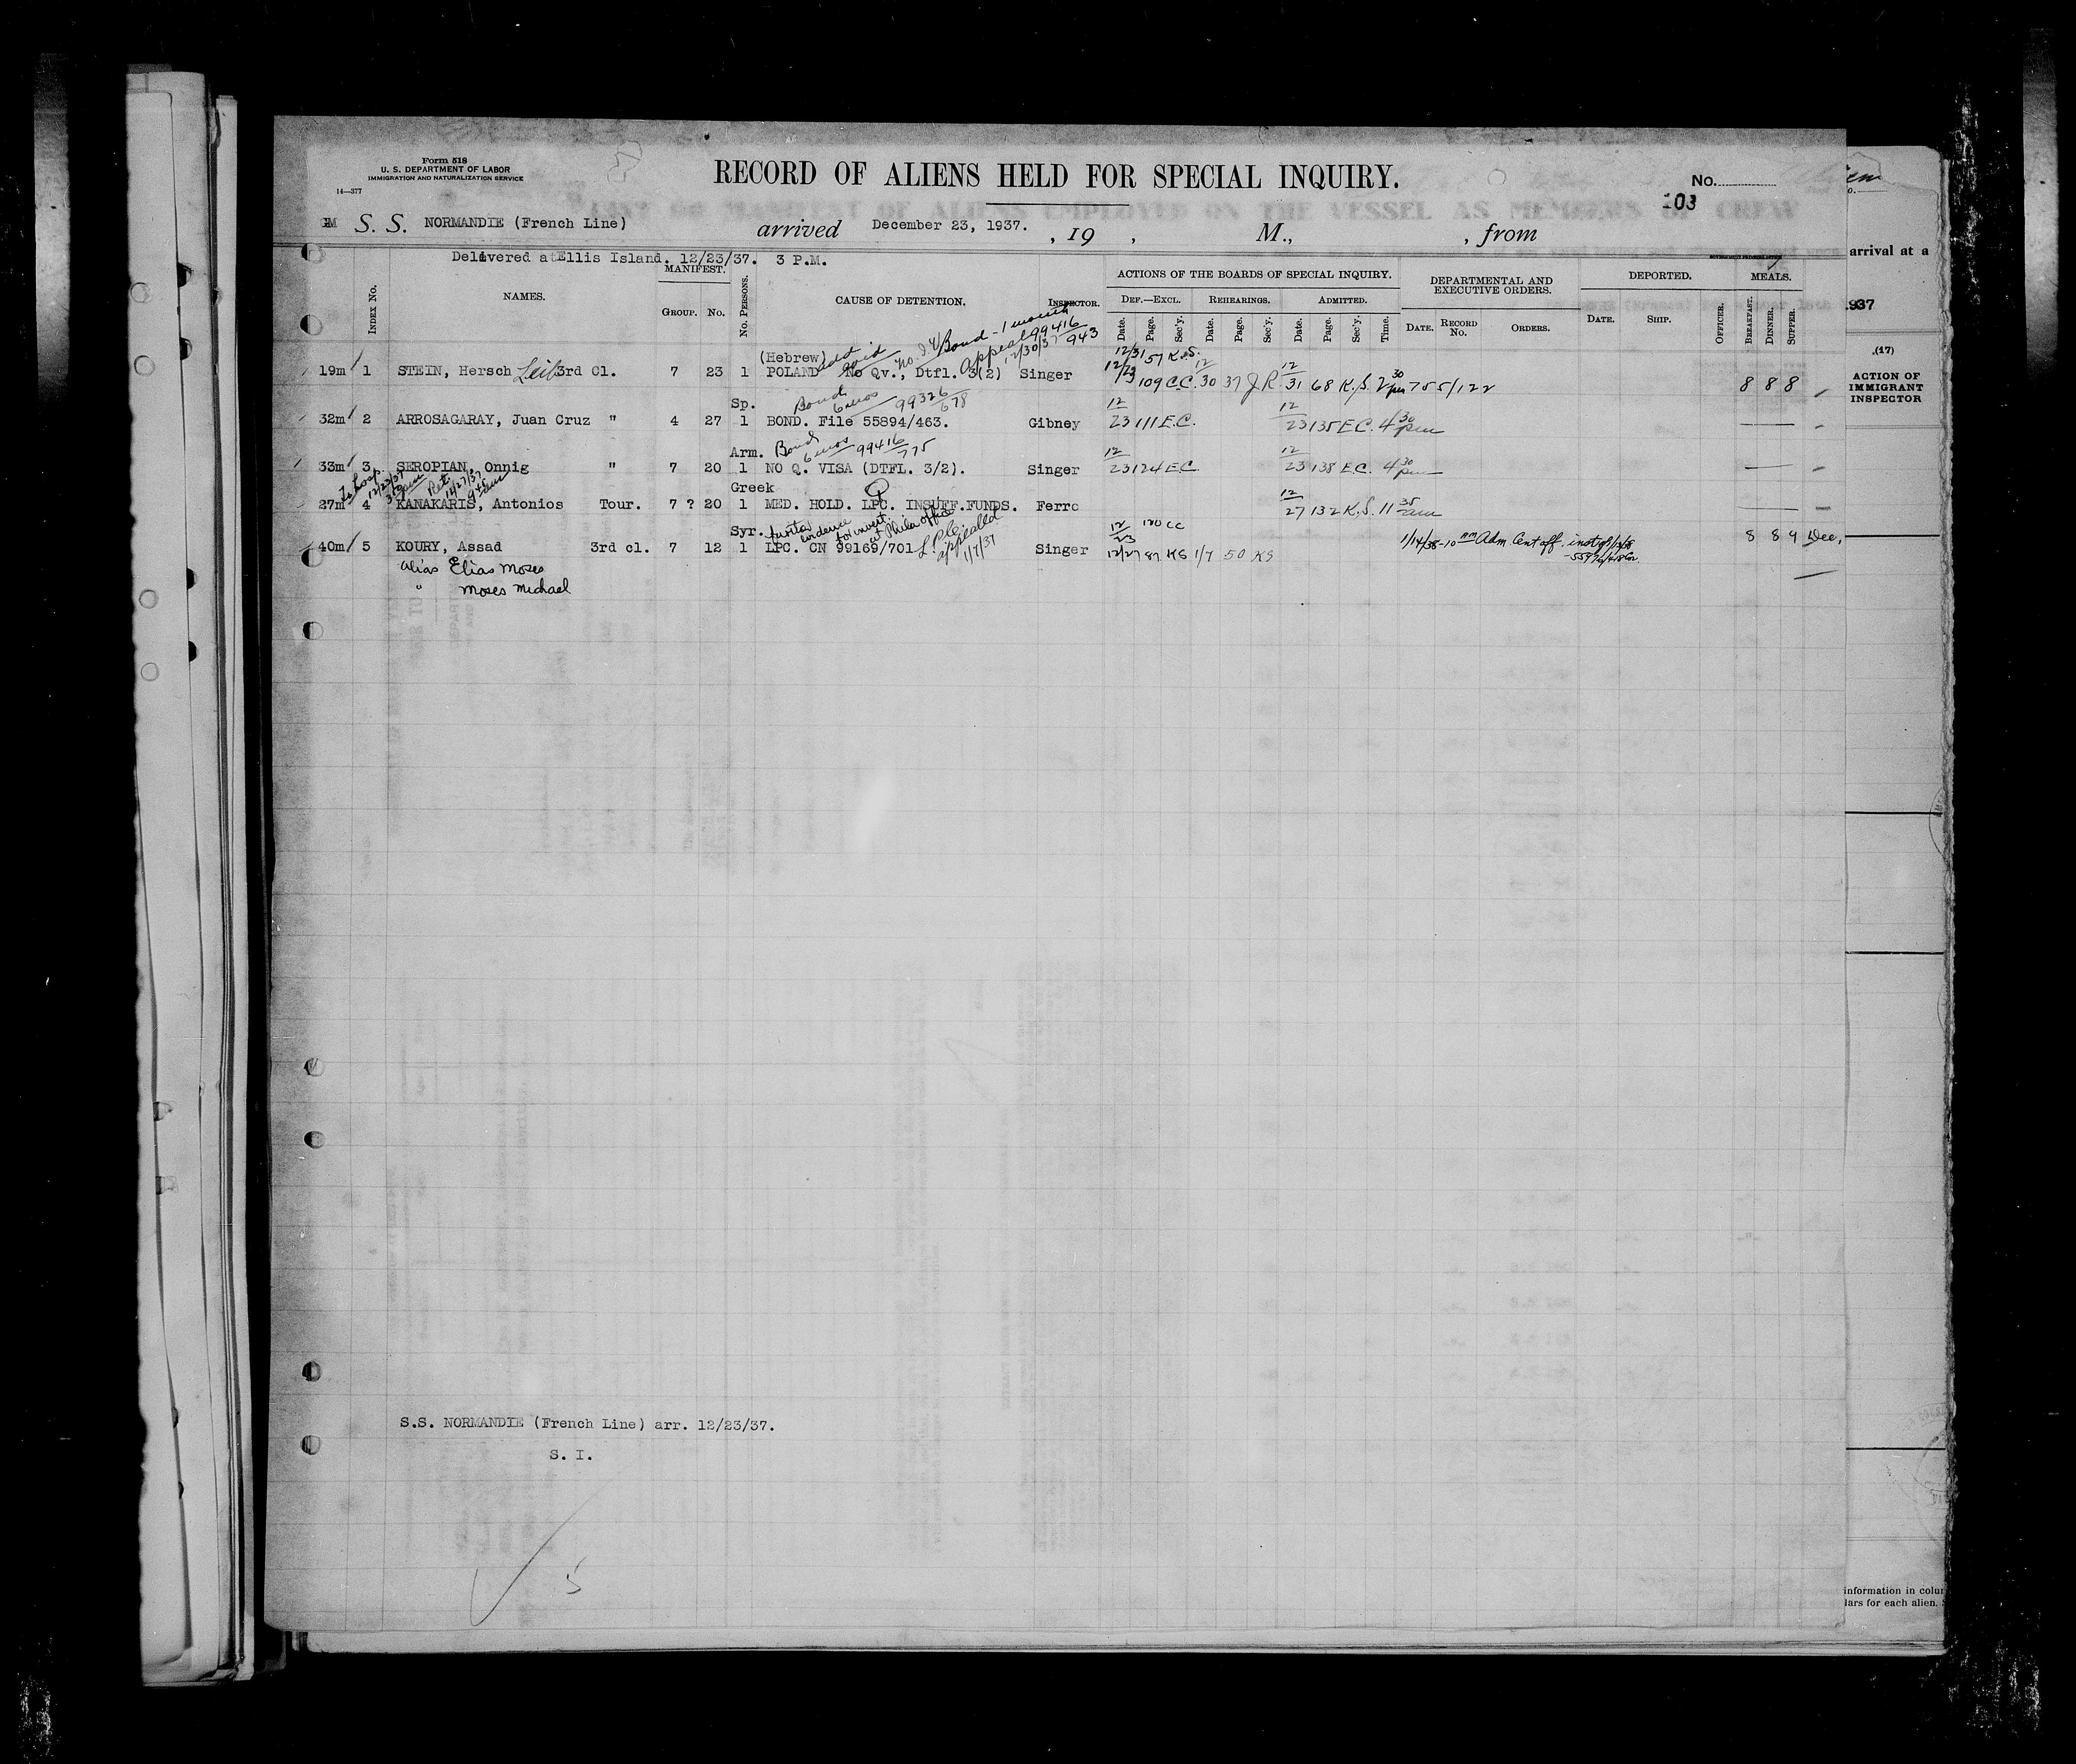 Form 518
U. S. DEPARTMENT OF LABOR
IMMIGRATION AND NATURALIZATION SERVICE
14—377
RECORD OF ALIENS HELD FOR SPECIAL INQUIRY.
No.
103
S. S. NORMANDIE (French Line) arrived December 23, 1937. , 19 , M., , from
Delivered at Ellis Island. 12/23/37. 3 P.M.
INDEX NO. NAMES. MANIFEST. GROUP. NO. NO. PERSONS. CAUSE OF DETENTION. INSPECTOR.
ACTIONS OF THE BOARDS OF SPECIAL INQUIRY. DEF.—EXCL. REHEARINGS. ADMITTED.
Date. Page. Sec'y. Date. Page. Sec'y. Date. Page. Sec'y. Time.
DEPARTMENTAL AND EXECUTIVE ORDERS. DATE. RECORD NO. ORDERS.
DEPORTED. DATE. SHIP. OFFICER. MEALS. BREAKFAST. DINNER. SUPPER.
No I V Bond - 1 month 99416/943
Appeal 12/30/37
(Hebrew) 12/31 57 K.S.
19m 1 STEIN, Hersch Leib 3rd Cl. 7 23 1 POLAND No Qv., Dtfl. 3(2) Singer 12/23 109 C.C. 12/30 37 J R 12/31 68 K.S. 2 30 pm 755/122 8 8 8
Sp. Bond 6 mos 99326/678
32m 2 ARROSAGARAY, Juan Cruz " 4 27 1 BOND. File 55894/463. Gibney 12/23 111 E.C. 12/23 135 E.C. 4 30 pm
Arm. Bond 6 mos 99416/775
33m 3 SEROPIAN, Onnig " 7 20 1 NO Q. VISA (DTFL. 3/2). Singer 12/23 124 E.C. 12/23 138 E.C. 4 30 pm
To hosp. 12/23/37 Ret. 12/27/37 9 45 am
Greek
27m 4 KANAKARIS, Antonios Tour. 7 ? 20 1 MED. HOLD. LPC. INSUFF.FUNDS. Ferro 12/27 132 K.S. 11 35 am
Syr. further evidence for invest. at Phila office
40m 5 KOURY, Assad 3rd cl. 7 12 1 LPC. CN 99169/701 L.P.C. appealed 1/7/37 Singer 12/23 120 CC 12/27 87 KS 1/7 50 KS 1/14/38 - 10 Adm. Cent off. 8 8 9 Dec.
alias Elias Moses
" Moses Michael
S.S. NORMANDIE (French Line) arr. 12/23/37.
S. I.
5
arrival at a
937
(17)
ACTION OF
IMMIGRANT
INSPECTOR
information in colu
lars for each alien.